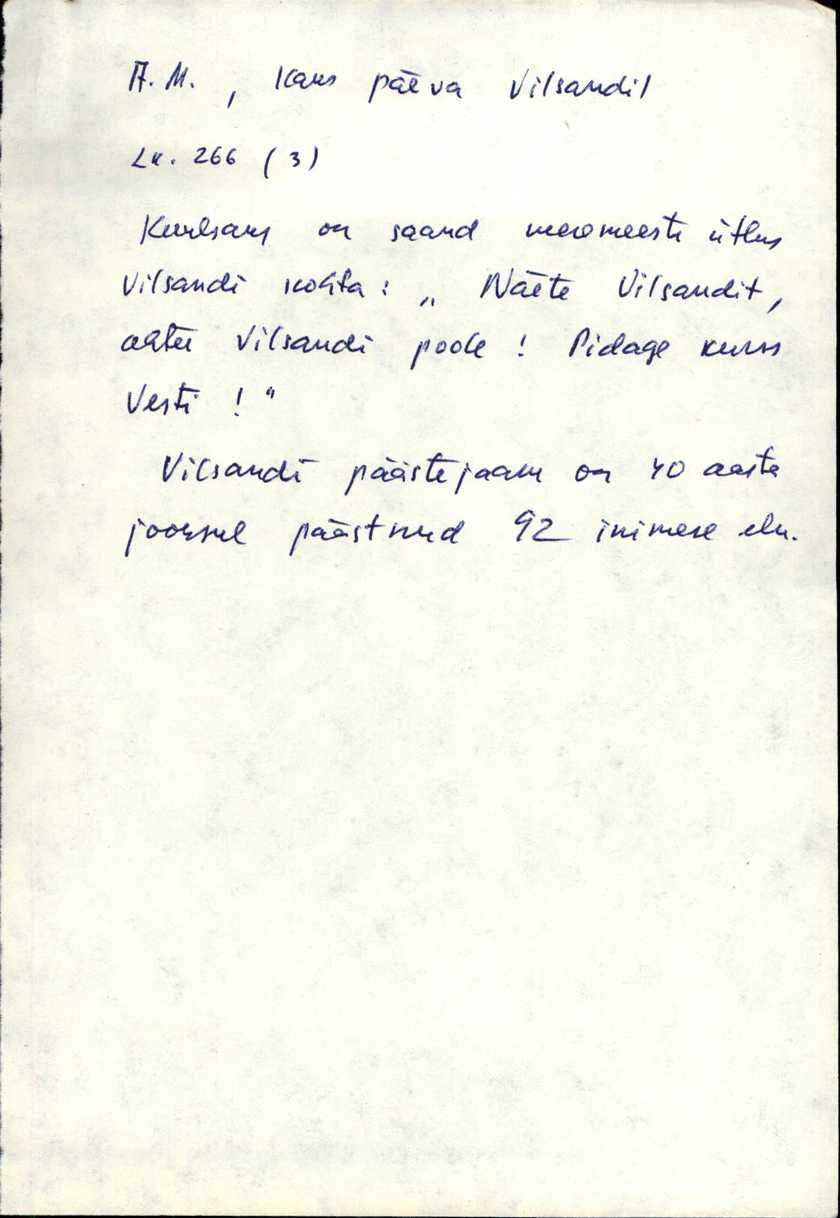 A.M., Kaks päeva Vilsandil
Lk. 266 (3)
Kuulsaks on saand meremeeste ütlus
Vilsandi kohta: „Näete Vilsandit,
Vilsandi poole! Pidage kurss
Vesti!"
Vilsandi päästejaam on 40 aasta
jooksul päästnud 92 inimese elu.